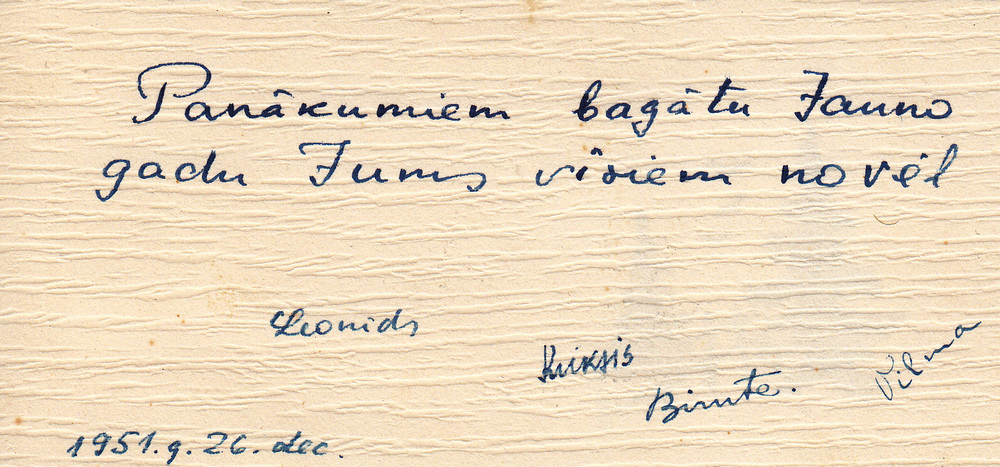 Panākumiem bagātu Jauno
gadu Jums visiem novēl
Leonids
Kuiksis
Birute.
Vilma
1951.g. 26. dec.